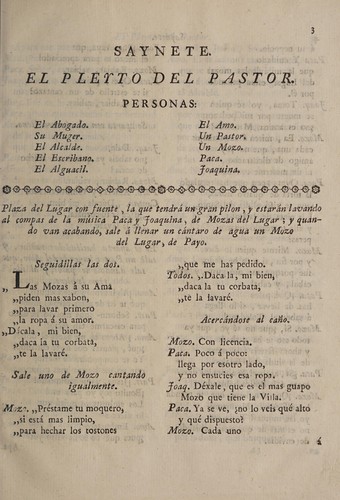 3
SAYNETE.
EL PLEYTO DEL PASTOR.
PERSONAS:
El Abogado.
Su Muger.
El Alcalde.
El Escribano.
El Alguacil.
El Amo.
Un Pastor.
Un Mozo.
Paca.
Joaquina.
Plaza del Lugar con fuente, la que tendrá un gran pilon, y estarán lavando
al compas de la música Paca y Joaquina, de Mozas del Lugar; y quan-
do van acabando, sale á llenar un cántaro de agua un Mozo
del Lugar, de Payo.
Seguidillas las dos.
„Las Mozas á su Ama
„piden mas xabon,
„para lavar primero
„la ropa á su amor.
„Dícala, mi bien,
„daca la tu corbata,
„te la lavaré.
Sale uno de Mozo cantando
igualmente.
Mozo. „Préstame tu moquero,
„si está mas limpio,
„para hechar los tostones
„que me has pedido.
Todos. „Daca la, mi bien,
„daca la tu corbata,
„te la lavaré.
Acercándose al caño.
Mozo. Con licencia.
Paca. Poco á poco:
llega por esotro lado,
y no ensucies esa ropa.
Joaq. Déxale, que es el mas guapo
Mozo que tiene la Villa.
Paca. Ya se ve, ¿no lo veis qué alto
y qué dispuesto?
Mozo. Cada uno
á